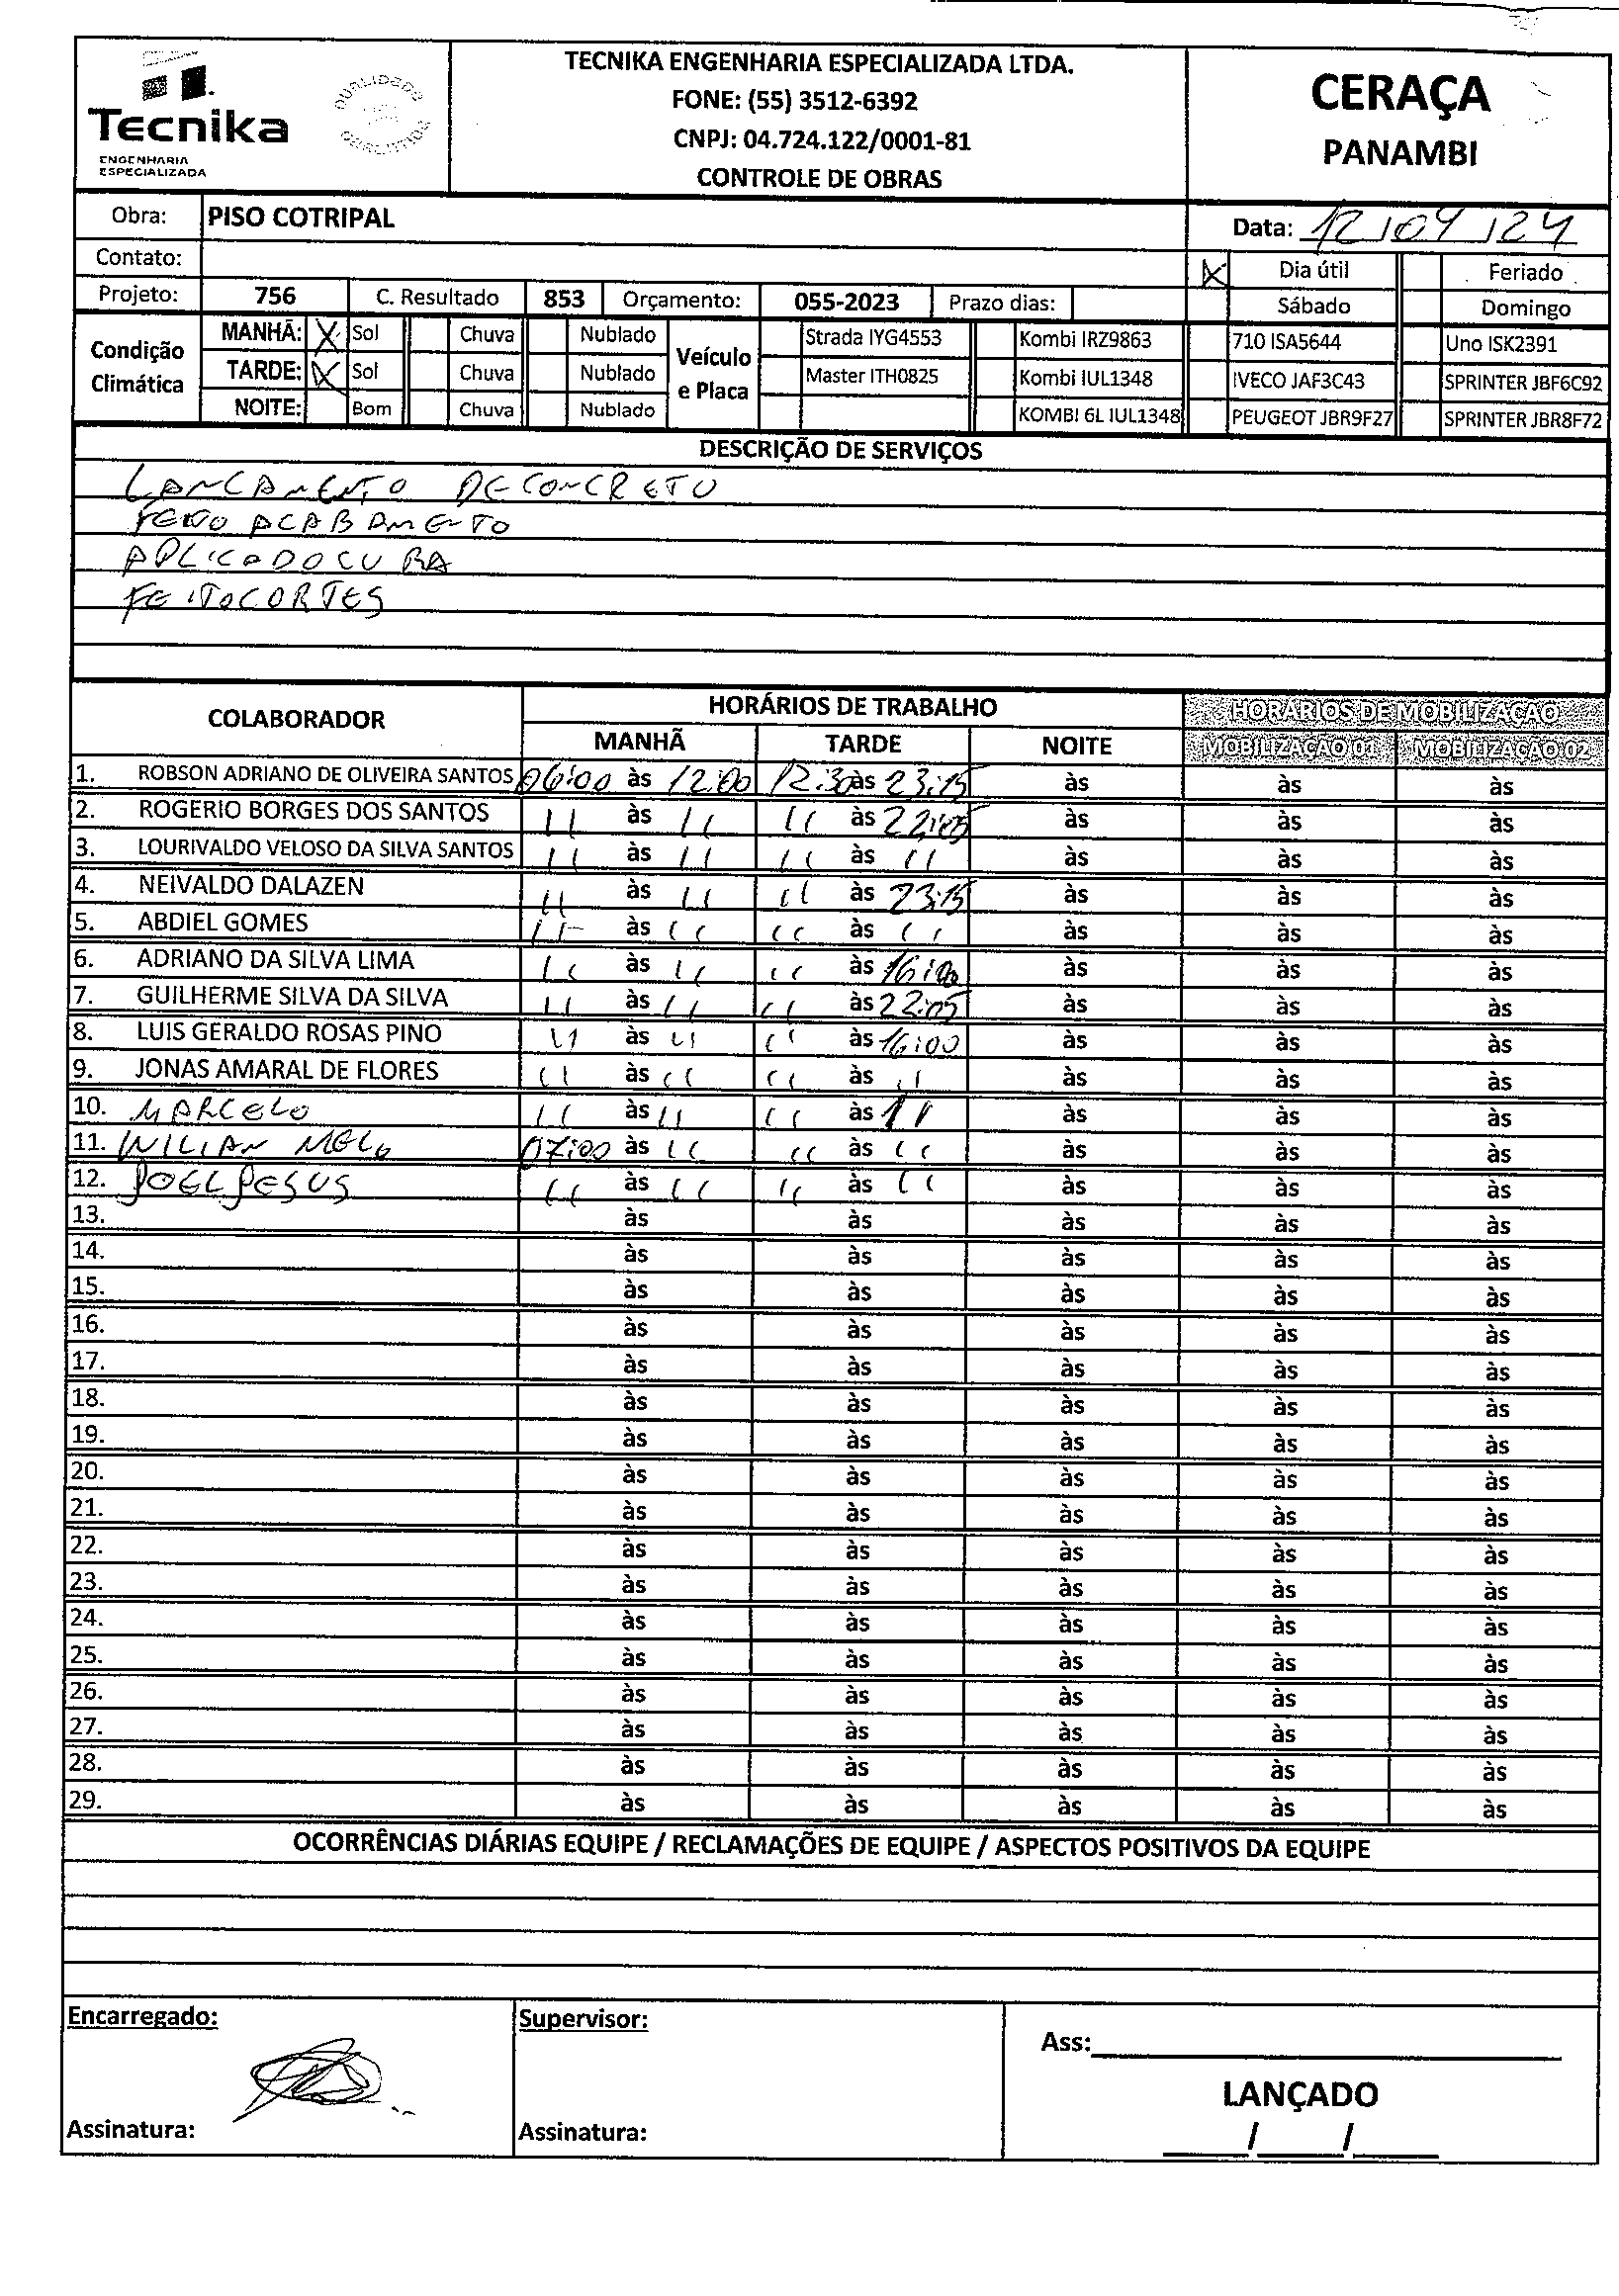 TECNIKA ENGENHARIA ESPECIALIZADA LTDA.
FONE: (55) 3512-6392
CNPJ: 04.724.122/0001-81
CONTROLE DE OBRAS
Tecnika
ENGENHARIA
ESPECIALIZADA
QUALIDADE
CERAÇA
PANAMBI
Obra: PISO COTRIPAL
Data: 12/04/24
Contato:
X Dia útil Feriado
Projeto: 756 C. Resultado 853 Orçamento: 055-2023 Prazo dias: Sábado Domingo
Condição Climática
MANHÃ: X Sol Chuva Nublado
TARDE: X Sol Chuva Nublado
NOITE: Bom Chuva Nublado
Veículo e Placa
Strada IYG4553 Kombi IRZ9863 710 ISA5644 Uno ISK2391
Master ITH0825 Kombi IUL1348 IVECO JAF3C43 SPRINTER JBF6C92
KOMBI 6L IUL1348 PEUGEOT JBR9F27 SPRINTER JBR8F72
DESCRIÇÃO DE SERVIÇOS
LANCAMENTO DE CONCRETO
FEITO ACABAMENTO
APLICADO CURA
FEITO CORTES
COLABORADOR HORÁRIOS DE TRABALHO HORÁRIOS DE MOBILIZAÇÃO
MANHÃ TARDE NOITE MOBILIZAÇÃO 01 MOBILIZAÇÃO 02
1. ROBSON ADRIANO DE OLIVEIRA SANTOS 06:00 às 12:00 12:30 às 23:15 às às às
2. ROGERIO BORGES DOS SANTOS " às " " às 22:05 às às às
3. LOURIVALDO VELOSO DA SILVA SANTOS " às " " às " às às às
4. NEIVALDO DALAZEN " às " " às 23:15 às às às
5. ABDIEL GOMES " às " " às " às às às
6. ADRIANO DA SILVA LIMA " às " " às 16:00 às às às
7. GUILHERME SILVA DA SILVA " às " " às 22:05 às às às
8. LUIS GERALDO ROSAS PINO " às " " às 16:00 às às às
9. JONAS AMARAL DE FLORES " às " " às " às às às
10. MARCELO " às " " às " às às às
11. WILIAN MELO 07:00 às " " às " às às às
12. JOEL JESUS " às " " às " às às às
13. às às às às às
14. às às às às às
15. às às às às às
16. às às às às às
17. às às às às às
18. às às às às às
19. às às às às às
20. às às às às às
21. às às às às às
22. às às às às às
23. às às às às às
24. às às às às às
25. às às às às às
26. às às às às às
27. às às às às às
28. às às às às às
29. às às às às às
OCORRÊNCIAS DIÁRIAS EQUIPE / RECLAMAÇÕES DE EQUIPE / ASPECTOS POSITIVOS DA EQUIPE
Encarregado: Supervisor:
Ass:
LANÇADO
Assinatura: Assinatura:
/ /